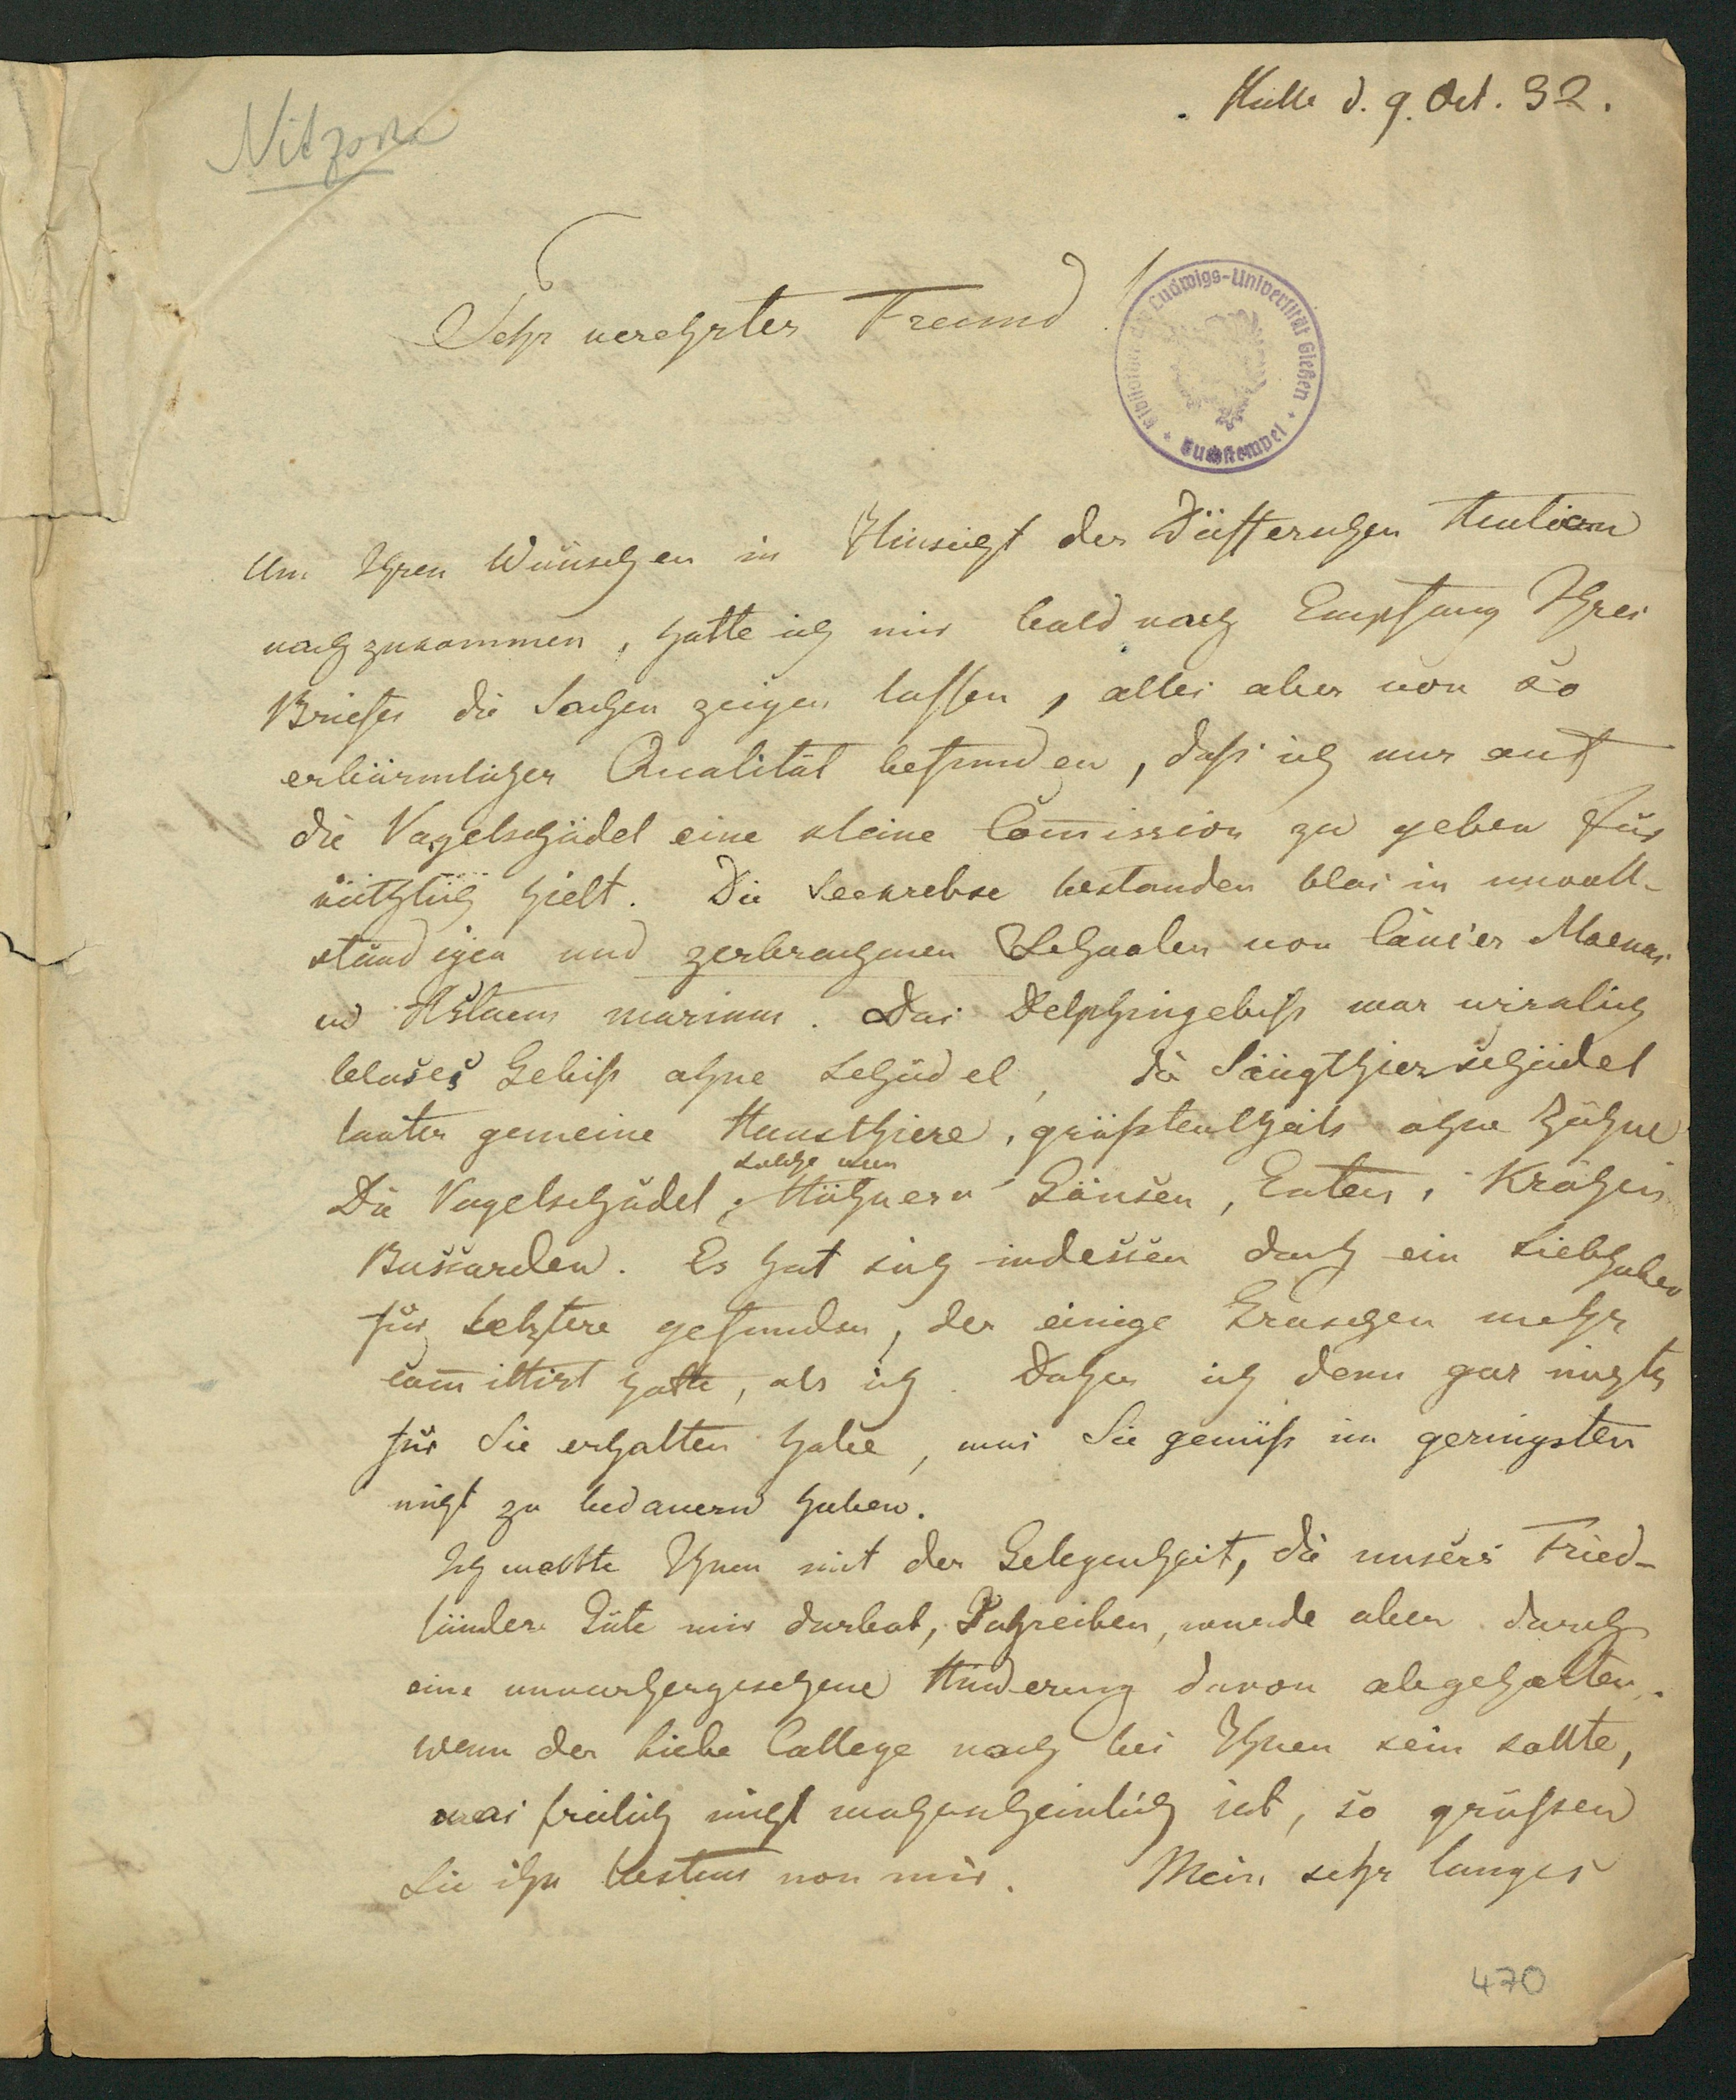 Halle d. 9. Oct. 32.
Nitzsch
Sehr verehrter Freund!
Bibliothek der Ludwigs-Universität Gießen
Buchstempel
Um Ihren Wünschen in Hinsicht der Düfferschen Auction
nachzukommen, hatte ich mir bald nach Empfang Ihres
Briefes die Sachen zeigen lassen, alles aber von so
erbärmlicher Qualität befunden, daß ich nur auf
die Vogelschädel eine kleine Com̅ission zu geben für
nützlich hielt. Die Seekrebse bestanden blos in unvoll-
ständigen und zerbrochenen Schaalen von Cancer Maenas
und Astacus marinus. Das Delphingebiß war wirklich
bloses Gebiß ohne Schädel, die Säugthierschädel
lauter gemeine Hausthiere, größtentheils ohne Zähne
Die Vogelschädel, solche von Hühnern Gänsen, Enten, Krähen,
Bussarden. Es hat sich indessen doch ein Liebhaber
für letztere gefunden, der einige Groschen mehr
com̅ittirt hatte, als ich. Daher ich denn gar nichts
für Sie erhalten habe, was Sie gewiß im geringsten
nicht zu bedauern haben.
Ich wollte Ihnen mit der Gelegenheit, die unsers Fried-
länders Güte mir darbot, Schreiben, wurde aber durch
eine unvorhergesehene Hinderung davon abgehalten.
Wenn der liebe College noch bei Ihnen sein sollte,
was freilich nicht wahrscheinlich ist, so grüßen
Sie ihn bestens von mir. Mein sehr langes
470